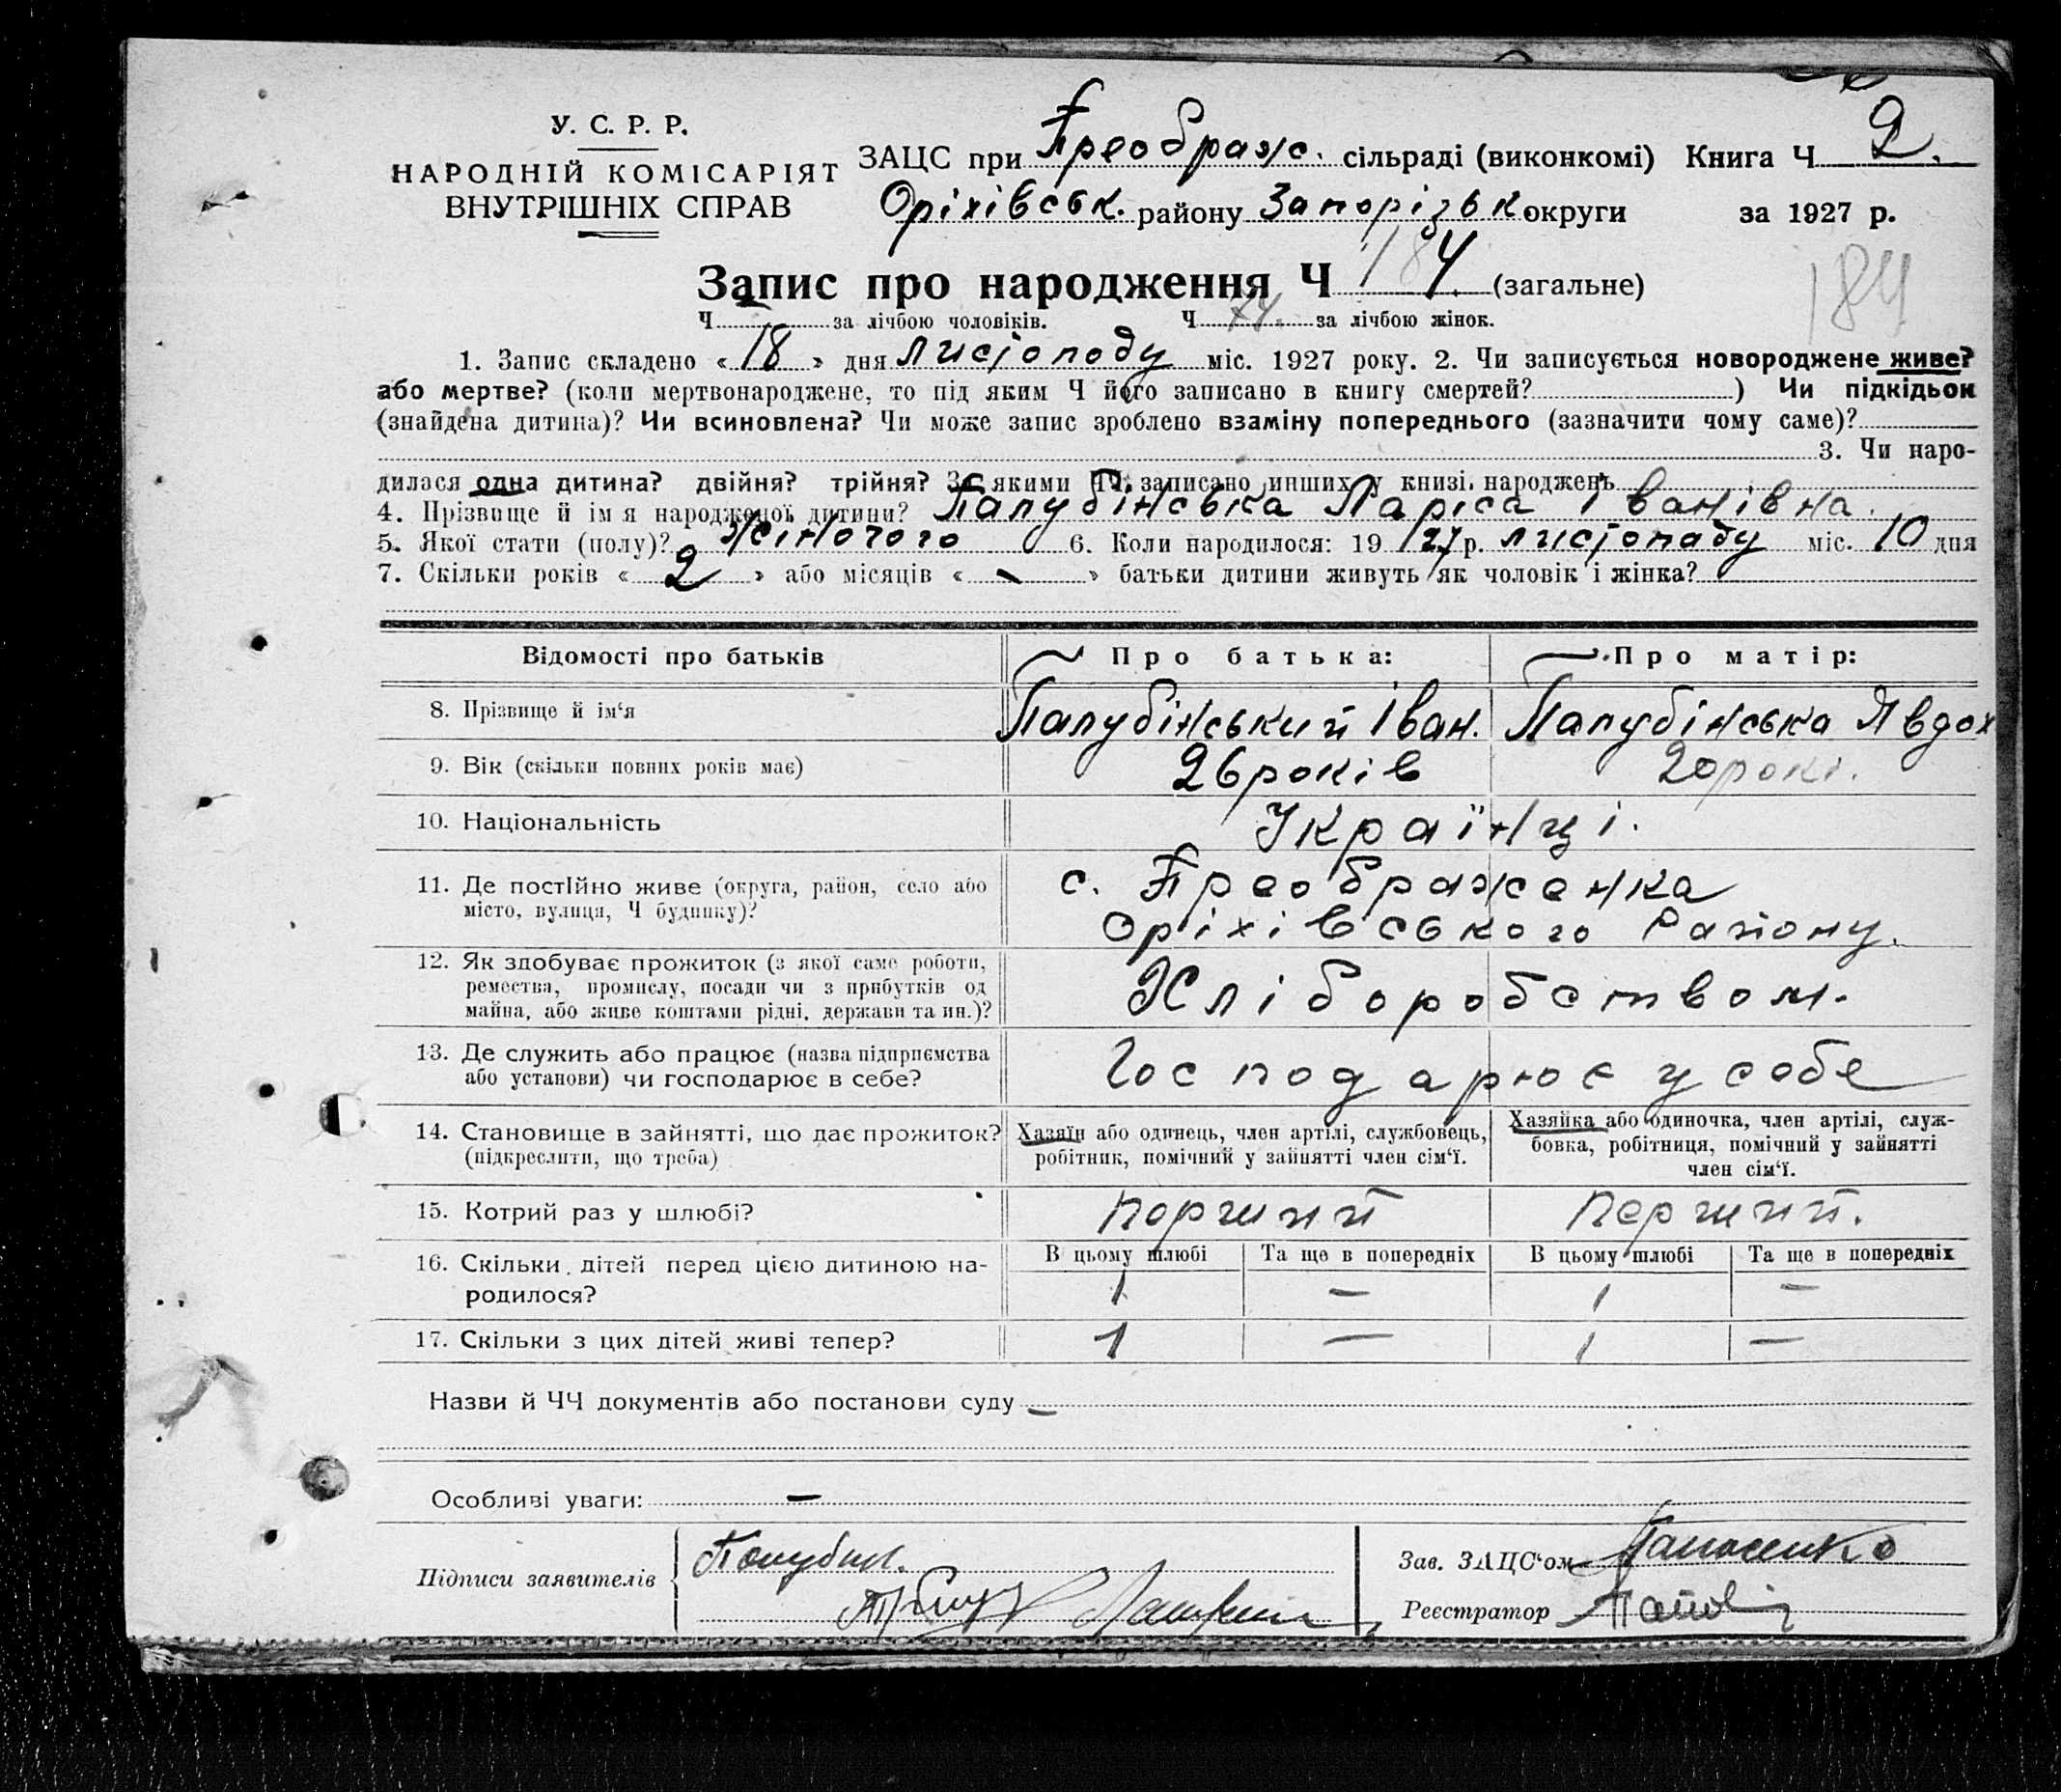 У. С. Р. Р.
НАРОДНІЙ КОМІСАРІЯТ
ВНУТРІШНІХ СПРАВ
ЗАЦС при Преображ. сільраді (виконкомі) Книга Ч 2.
Оріхівськ. району Запорізьк округи за 1927 р.
Запис про народження Ч 184. (загальне)
184
Ч за лічбою чоловіків. Ч 74. за лічбою жінок.
1. Запис складено « 18 » дня листопаду міс. 1927 року. 2. Чи записується новороджене живе?
або мертве? (коли мертвонароджене, то під яким Ч його записано в книгу смертей? ) Чи підкідьок
(знайдена дитина)? Чи всиновлена? Чи може запис зроблено взаміну попереднього (зазначити чому саме)?
3. Чи наро-
дилася одна дитина? двійня? трійня? За якими ЧЧ записано инших у книзі народжень
4. Прізвище й ім я народженої дитини? Палубінська Лариса Іванівна.
5. Якої стати (полу)? жіночого 6. Коли народилося: 19 27 р. листопаду міс. 10 дня
7. Скільки років « 2 » або місяців « - » батьки дитини живуть як чоловік і жінка?
Відомості про батьків Про батька: Про матір:
8. Прізвище й ім‘я Палубінський Іван. Палубінська Явдох
9. Вік (скільки повних років має) 26 років 20 рокі.
10. Національність Українці.
11. Де постІйно живе (округа, район, село або
місто, вулиця, Ч будинку)?
с. Преображенка
Оріхівського Району.
12. Як здобуває прожиток (з якої саме роботи,
ремества, промислу, посади чи з прибутків од
майна, або живе коштами рідні, держави та ин.)?
Хліборобством.
13. Де служить або працює (назва підприємства
або установи) чи господарює в себе?
Господарює у себе
14. Становище в зайнятті, що дає прожиток?
(підкреслити, що треба)
Хазяїн або одинець, член артілі, службовець,
робітник, помічний у зайнятті член сім‘ї.
Хазяйка або одиночка, член артілі, служ-
бовка, робітниця, помічний у зайнятті
член сім‘ї.
15. Котрий раз у шлюбі? перший перший.
16. Скільки дітей перед цією дитиною на-
родилося?
В цьому шлюбі Та ще в попередніх В цьому шлюбі Та ще в попередніх
1 — 1 —
17. Скільки з цих дітей живі тепер? 1 — 1 —
Назви й ЧЧ документів або постанови суду —
Особливі уваги: —
Підписи заявителів
Зав. ЗАЦС‘ом
Реєстратор